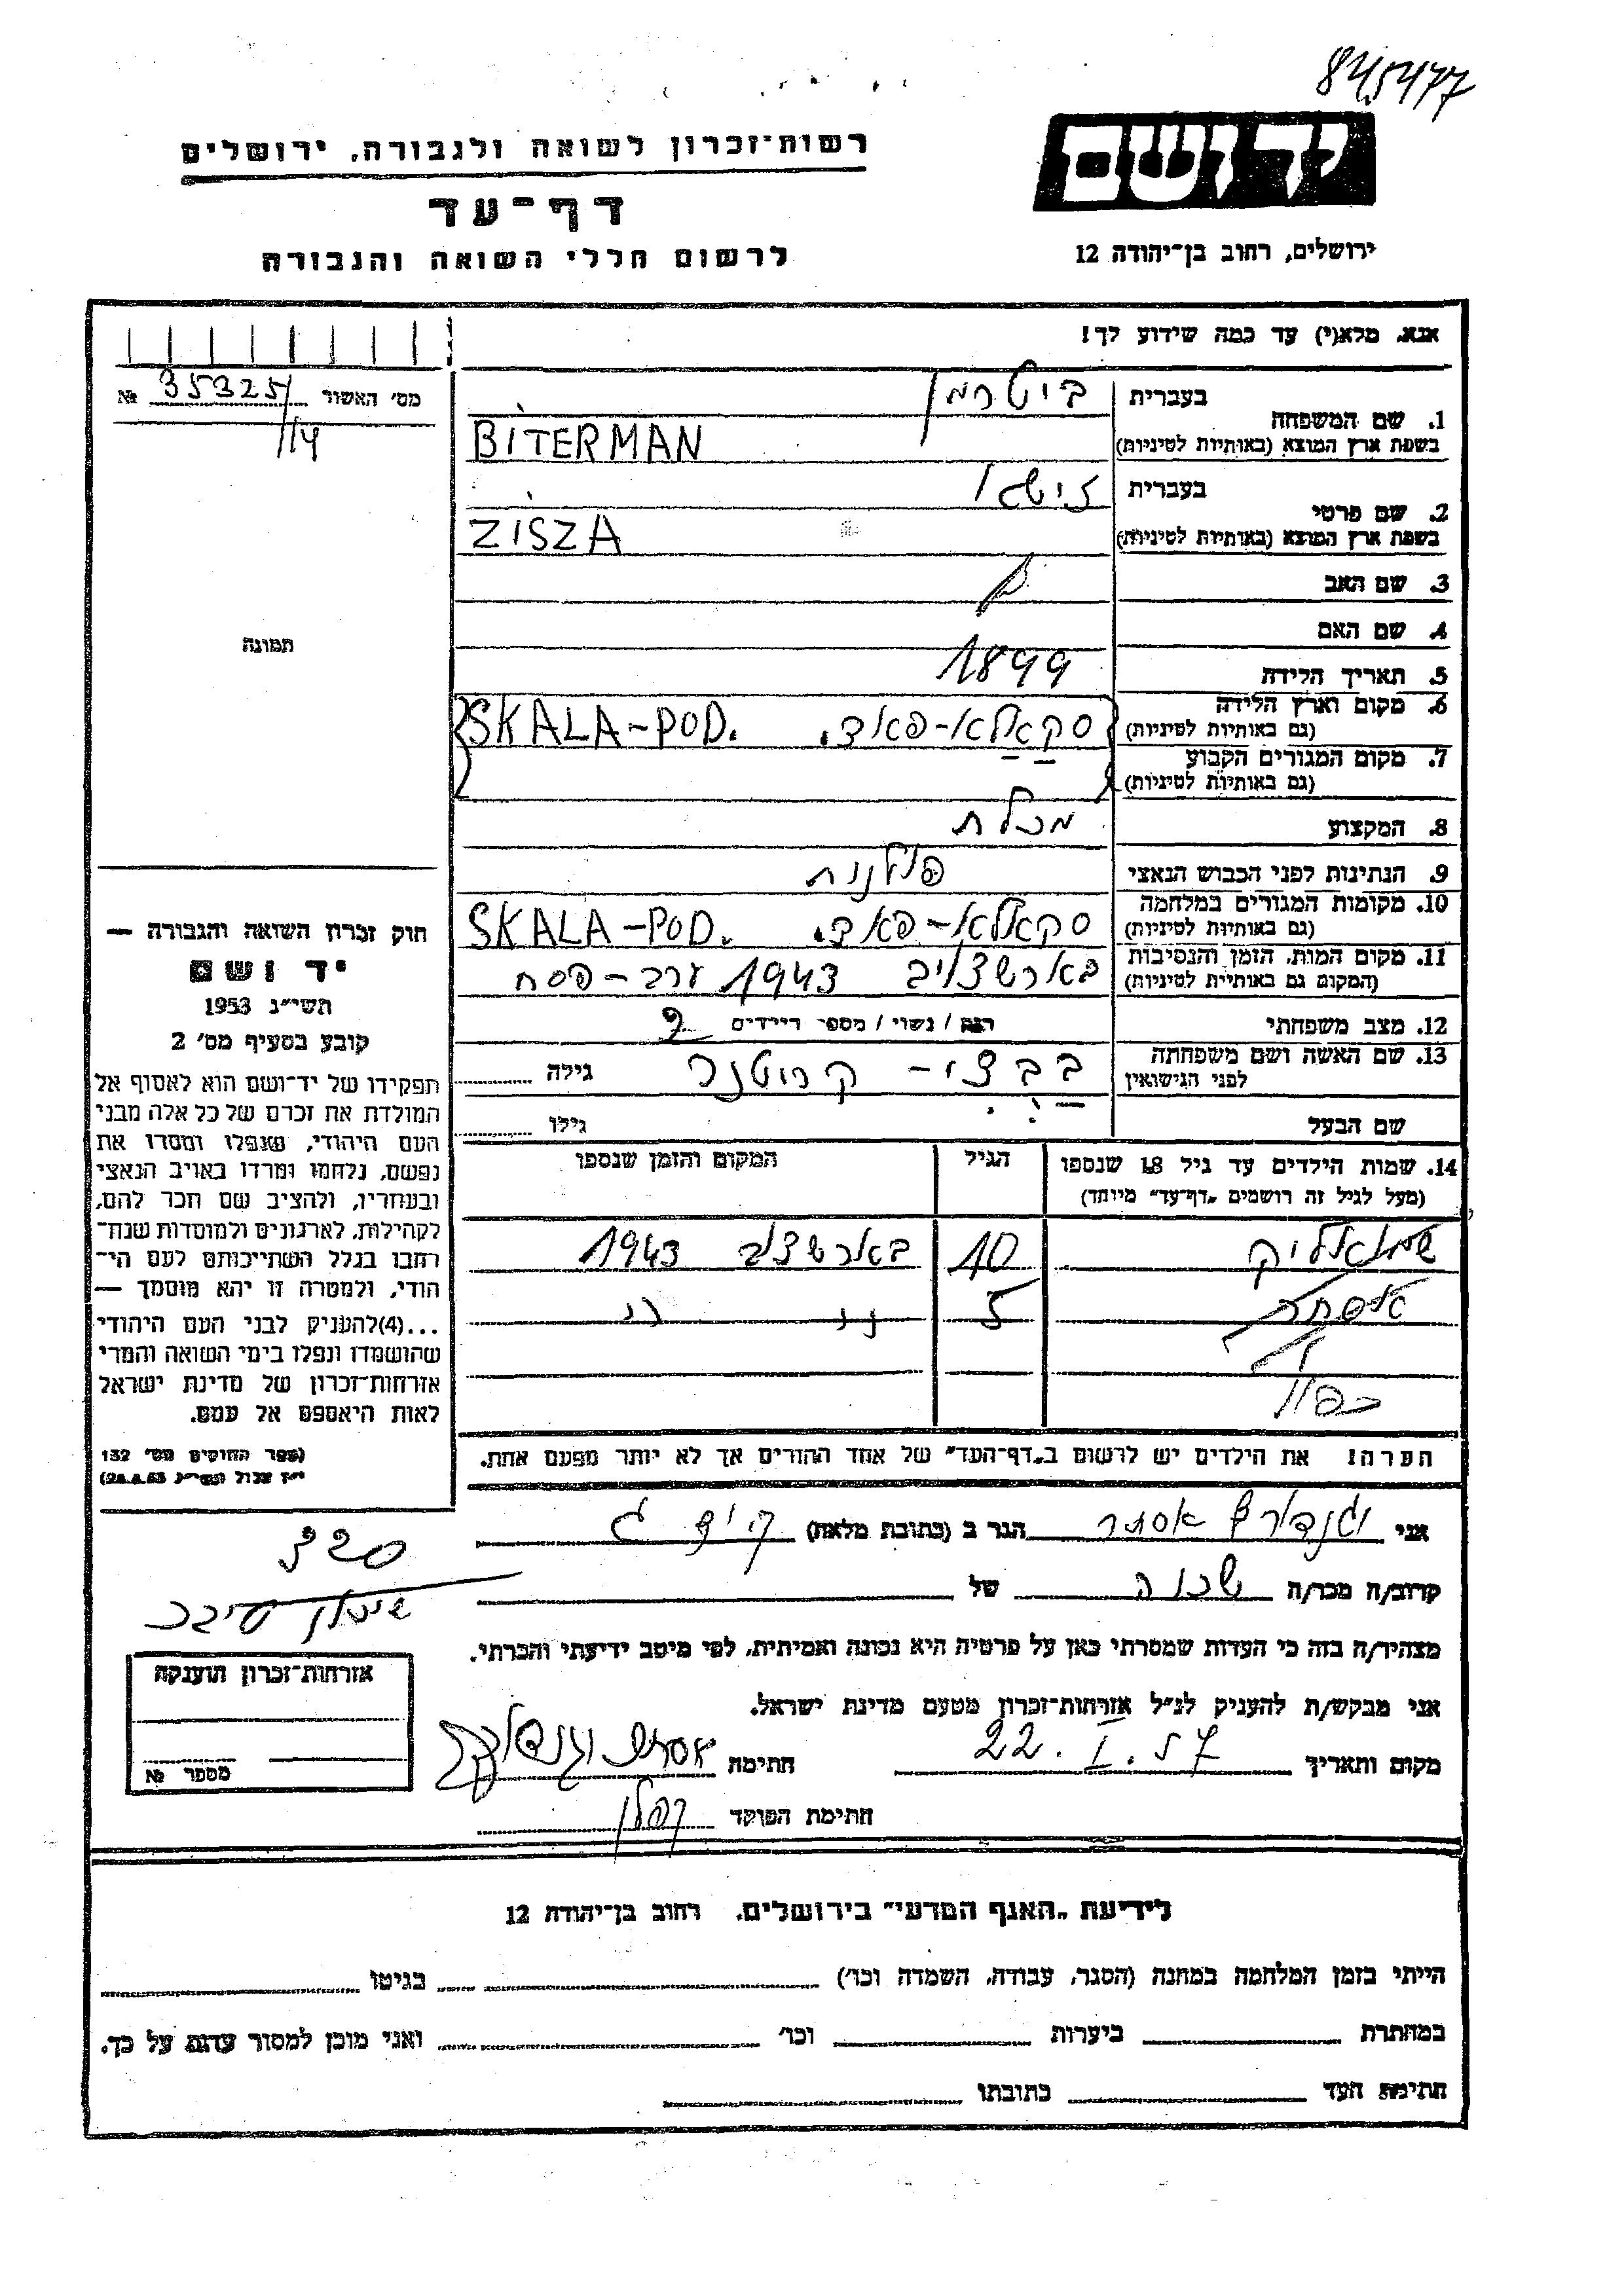 845477
יד ושם
רשות־זכרון לשואה ולגבורה, ירושלים
דף־עד
לרשום חללי השואה והגבורה
ירושלים, רחוב בן־יהודה 12
אנא, מלא(י) עד כמה שידוע לך!
מס' האשור 35325/ №
114
1. שם המשפחה
בעברית ביטרמן
בשפת ארץ המוצא (באותיות לטיניות) BITERMAN
2. שם פרטי
בעברית זישא
בשפת ארץ המוצא (באותיות לטיניות) ZISZA
3. שם האב
4. שם האם
תמונה
5. תאריך הלידה 1899
6. מקום וארץ הלידה
(גם באותיות לטיניות) סקאלא-פאד. SKALA-POD.
7. מקום המגורים הקבוע
(גם באותיות לטיניות)
8. המקצוע
9. הנתינות לפני הכבוש הנאצי פולנית
10. מקומות המגורים במלחמה
(גם באותיות לטיניות) סקאלא-פאד. SKALA-POD.
11. מקום המות, הזמן והנסיבות
(המקום גם באותיות לטיניות) בארשצ'וב 1943 ערב-פסח
12. מצב משפחתי רווק / נשוי / מספר הילדים 2
13. שם האשה ושם משפחתה
לפני הנישואין קרוטנר גילה
שם הבעל גילו
14. שמות הילדים עד גיל 18 שנספו
(מעל לגיל זה רושמים "דף־עד" מיוחד)
הגיל
המקום והזמן שנספו
10 בארשצ'וב 1943
אסתר " "
הערה! את הילדים יש לרשום ב"דף־העד" של אחד ההורים אך לא יותר מפעם אחת.
חוק זכרון השואה והגבורה —
יד ושם
תשי"ג 1953
קובע בסעיף מס' 2
תפקידו של יד־ושם הוא לאסוף אל
המולדת את זכרם של כל אלה מבני
העם היהודי, שנפלו ומסרו את
נפשם, נלחמו ומרדו באויב הנאצי
ובעוזריו, ולהציב שם וזכר להם,
לקהילות, לארגונים ולמוסדות שנח־
רבו בגלל השתייכותם לעם הי־
הודי, ולמטרה זו יהא מוסמך —
...(4) להעניק לבני העם היהודי
שהושמדו ונפלו בימי השואה והמרי
אזרחות־זכרון של מדינת ישראל
לאות היאספם אל עמם.
(ספר החוקים מס' 132
י"ז אלול תשי"ג 28.8.53)
אני אסתר הגר ב (כתובת מלאה)
קרוב/ה מכר/ה שכנה של
מצהיר/ה בזה כי העדות שמסרתי כאן על פרטיה היא נכונה ואמיתית, לפי מיטב ידיעתי והכרתי.
אני מבקש/ת להעניק לנ"ל אזרחות־זכרון מטעם מדינת ישראל.
מקום ותאריך 22. I. 57 חתימה
חתימת הפוקד
אזרחות־זכרון הוענקה
מספר №
לידיעת "האגף המדעי" בירושלים, רחוב בן־יהודה 12
הייתי בזמן המלחמה במחנה (הסגר, עבודה, השמדה וכו') בגיטו
במחתרת ביערות וכו' ואני מוכן למסור עדות על כך.
חתימת העד כתובתו